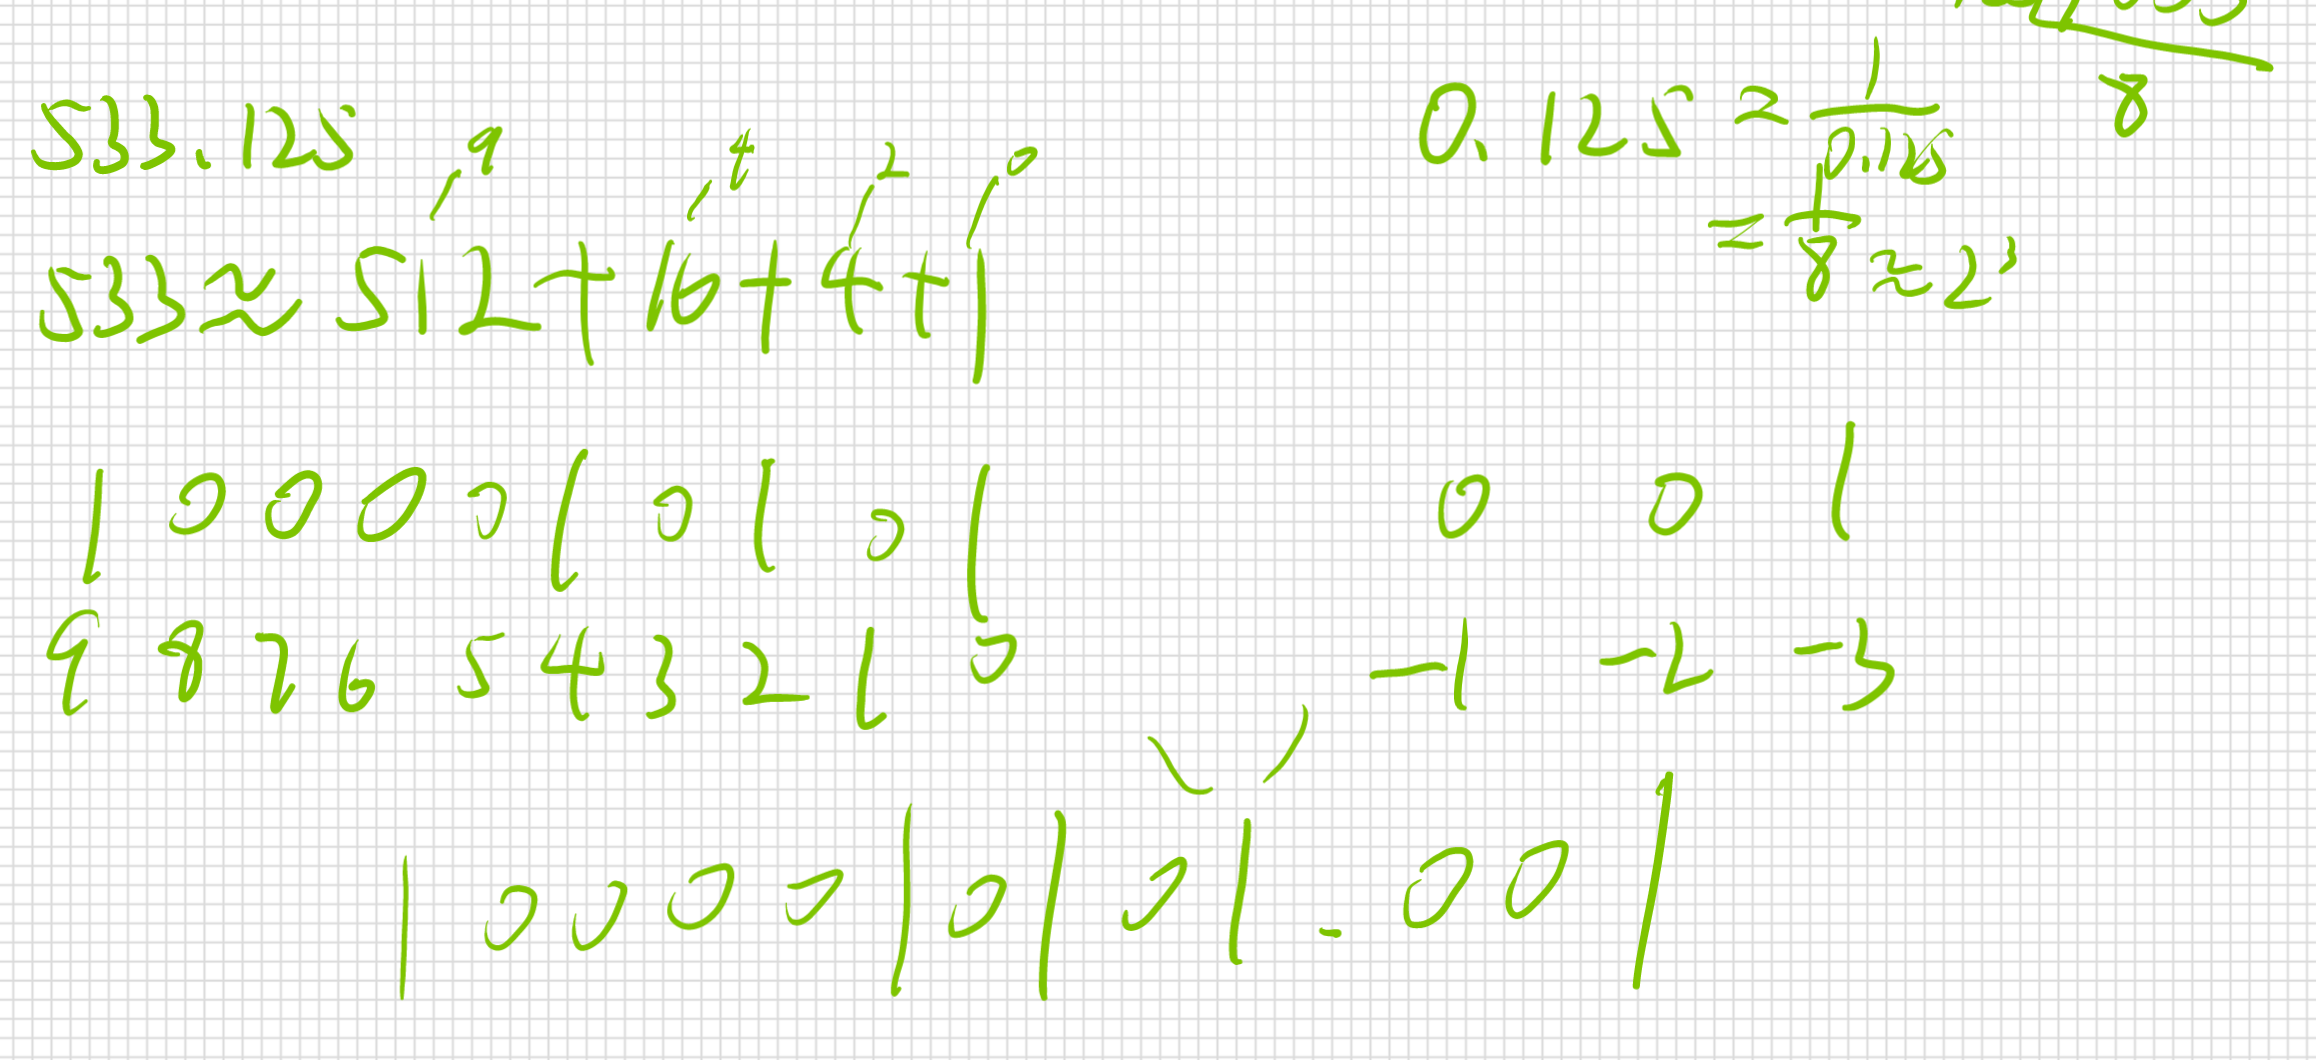 533.125
9 4 2 0
533 ≈ 512 + 16 + 4 + 1
0.125 = 1/0.125
= 1/8 ≈ 2³
8
1 0 0 0 0 1 0 1 0 1 0 0 1
9 8 7 6 5 4 3 2 1 0 -1 -2 -3
1000010101.001